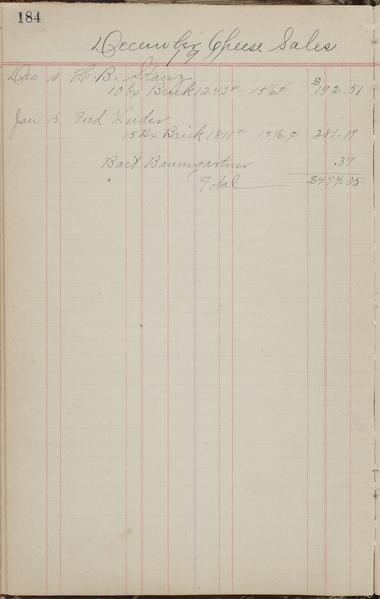 184
December Cheese Sales
19
Dec H. B. Stanz
10 Bx Brick 1242# - 15½¢ $192.51
Jan 15 Ferd Luder
15 Bx Brick 1811# 15½¢ 281.17
Bart Baumgartner .37
Total $474.05